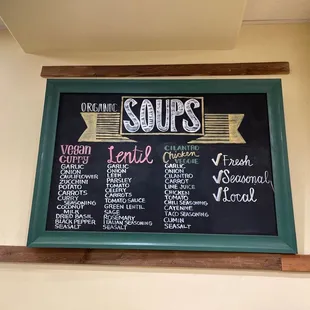 ORGANIC SOUPS
Vegan
Curry
GARLIC
ONION
CAULIFLOWER
ZUCCHINI
POTATO
CARROTS
CURRY
SEASONING
COCONUT
MILK
DRIED BASIL
BLACK PEPPER
SEASALT
Lentil
GARLIC
ONION
LEEK
PARSLEY
TOMATO
CELERY
CARROTS
TOMATO SAUCE
GREEN LENTIL
SAGE
ROSEMARY
ITALIAN SEASONING
SEASALT
CILANTRO
Chicken
VEGGIE
GARLIC
ONION
CILANTRO
CARROT
LIME JUICE
CHICKEN
TOMATO
CHILI SEASONING
CAYENNE
TACO SEASONING
CUMIN
SEASALT
✓Fresh
✓Seasonal
✓Local